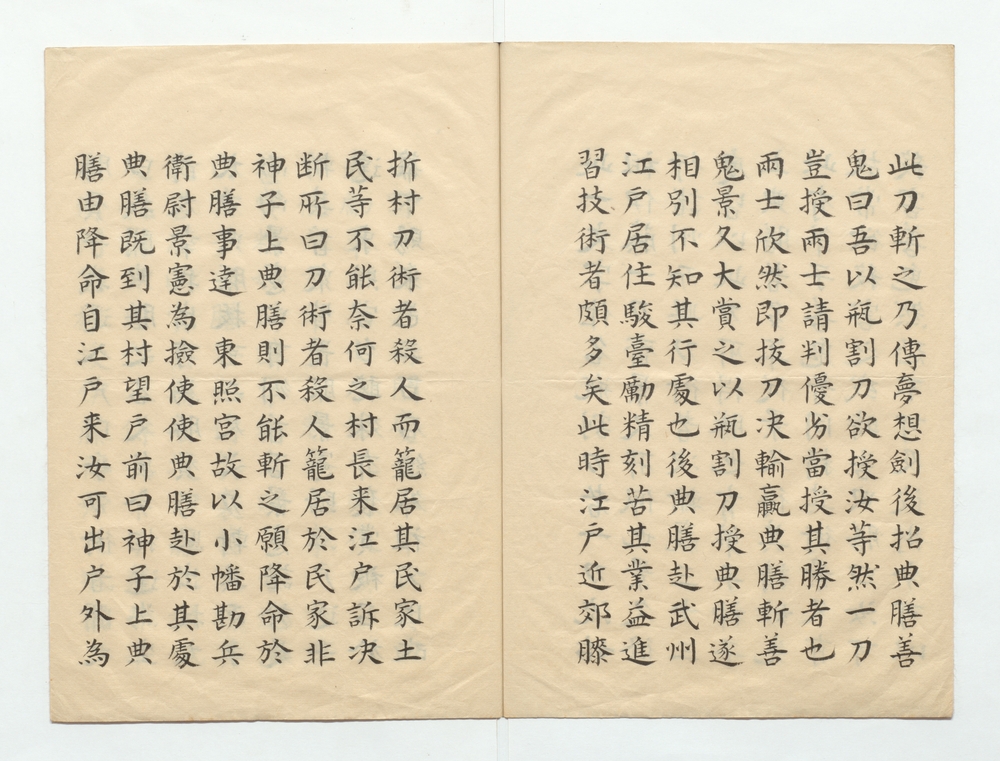 此刀斬之乃傳夢想劍後招典膳善
鬼曰吾以瓶割刀欲授汝等然一刀
豈授兩士請判優劣當授其勝者也
兩士欣然即拔刀决輸贏典膳斬善
鬼景久大賞之以瓶割刀授典膳遂
相別不知其行處也後典膳赴武州
江戶居住駿臺勵精刻苦其業益進
習技術者頗多矣此時江戶近郊膝
折村刀術者殺人而籠居其民家土
民等不能奈何之村長来江戶訴决
断所曰刀術者殺人籠居於民家非
神子上典膳則不能斬之願降命於
典膳事達東照宮故以小幡勘兵
衛尉景憲為撿使使典膳赴於其處
典膳既到其村望戶前曰神子上典
膳由降命自江戶来汝可出戶外為